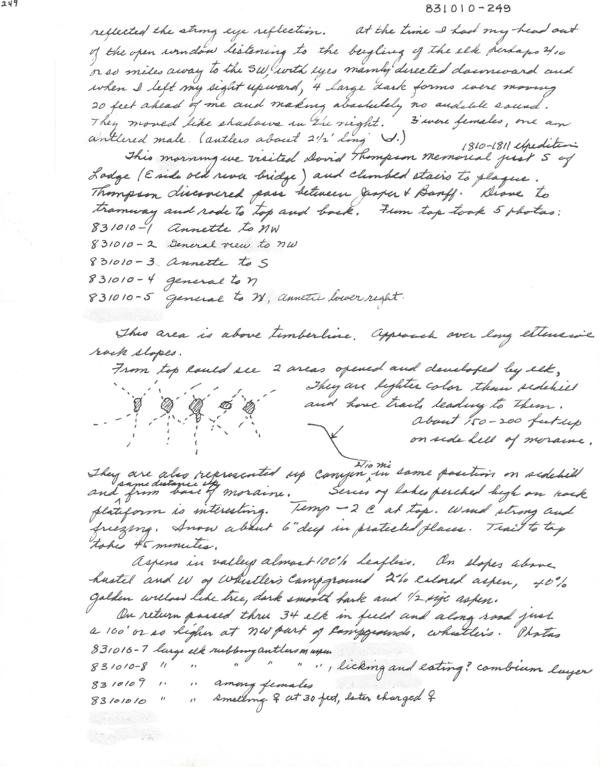 249
831010-249
reflected the strong eye reflection. At the time I had my head out
of the open window listening to the bugling of the elk perhaps 2/10
or so miles away to the SW, with eyes mainly directed downward and
when I left my sight upward, 4 large dark forms were moving
20 feet ahead of me and making absolutely no audible sound.
They moved like shadows in the night. 3 were females, one an
antlered male. (antlers about 2½' long
1810-1811 expedition
This morning we visited David Thompson Memorial just S of
Lodge (E side old river bridge) and climbed stairs to plaque.
Thompson discovered pass between Jasper & Banff. Drove to
tramway and rode to top and back. From top took 5 photos:
831010-1 Annette to NW
831010-2 General view to NW
831010-3 Annette to S
831010-4 general to N
831010-5 general to N, Annette lower right.
This area is above timberline. Approach over long extensive
rock slopes.
From top could see 2 areas opened and developed by elk,
They are lighter color than sidehill
and have trails leading to them.
About 150-200 feet up
on side hill of moraine.
2/10 mi
They are also represented up canyon in some position on sidehill
same distance up
and from base of moraine. Series of lakes perched high on rock
platform is interesting. Temp -2 C at top. Wind strong and
freezing. Snow about 6" deep in protected places. Trail to top
takes 45 minutes.
Aspens in valley almost 100% leafless. On slopes above
hostel and W of Whistlers Campground 2% colored aspen, 40%
golden willow like tree, dark smooth bark and 1/2 size aspen.
On return passed thru 34 elk in field and along road just
a 100' or so higher at NW part of Campgrounds, Whistlers. Photos
831016-7 large elk rubbing antlers
831010-8 " " " " " ", licking and eating? cambium layer
83 10109 " " among females
83101010 " " smelling ♀ at 30 feet, later charged ♀